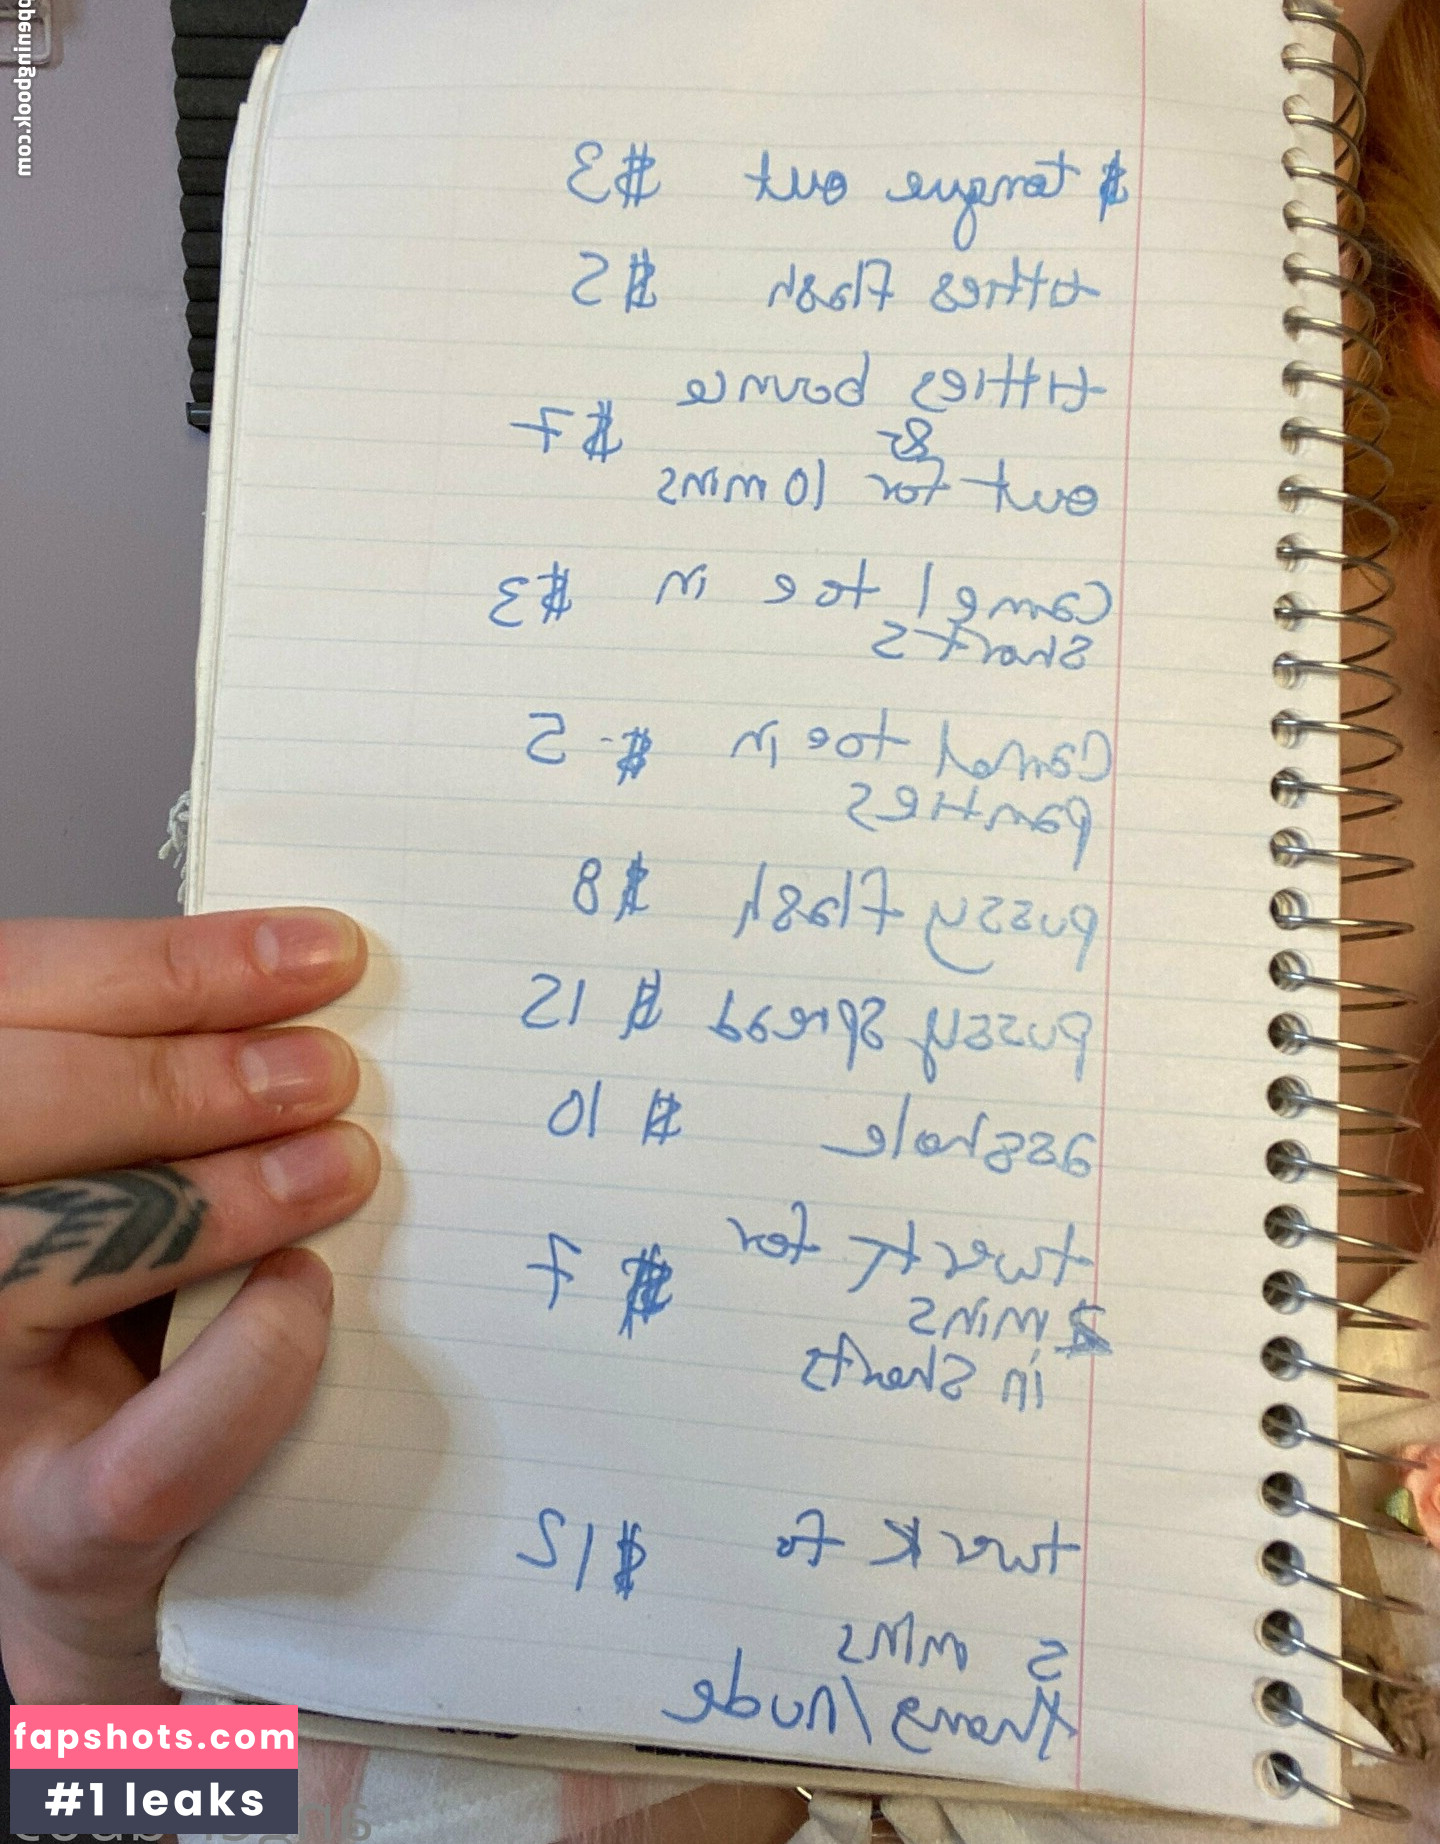 $ tongue out $3
titties flash $5
titties bounce
& $7
out for 10 mins
camel toe in $3
shorts
camel toe in $-5
panties
pussy flash $8
pussy spread $15
asshole $10
twerk for
$7
2 mins
in shorts
twerk fo $12
5 mins
thong/nude
fapshots.com
#1 leaks